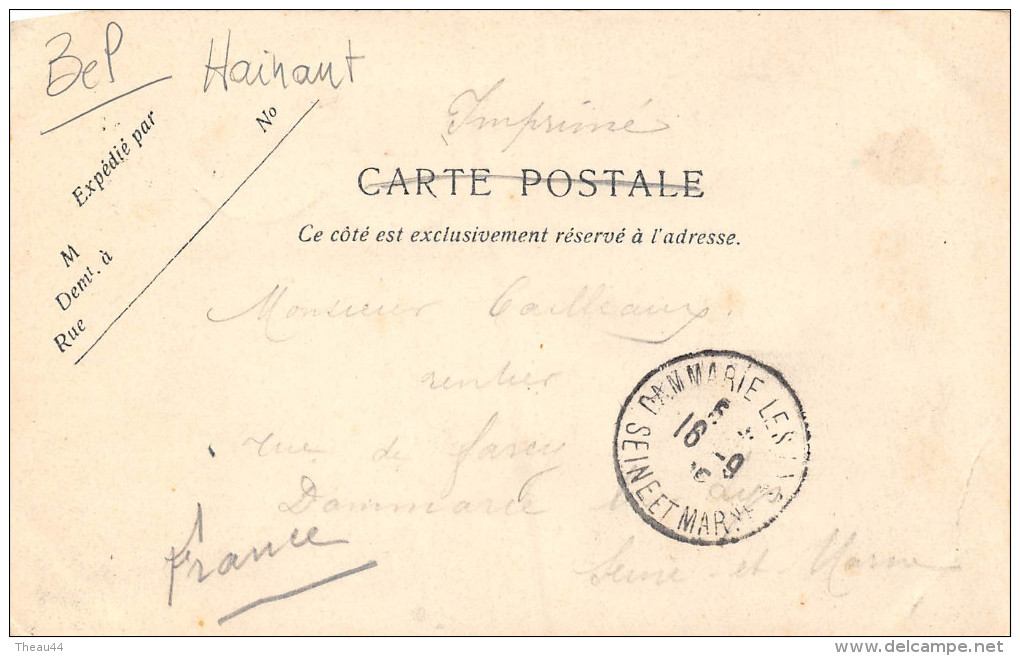 Bel Hainaut
Expédié par
No
M
Demt. à
Rue
Imprimé
CARTE POSTALE
Ce côté est exclusivement réservé à l'adresse.
Monsieur Cailleaux
rentier
rue de Farcy
Dammarie les Lys
Seine-et-Marne
France
DAMMARIE LES LYS
SEINE ET MARNE
16 -9
Theau44
delcampe.net